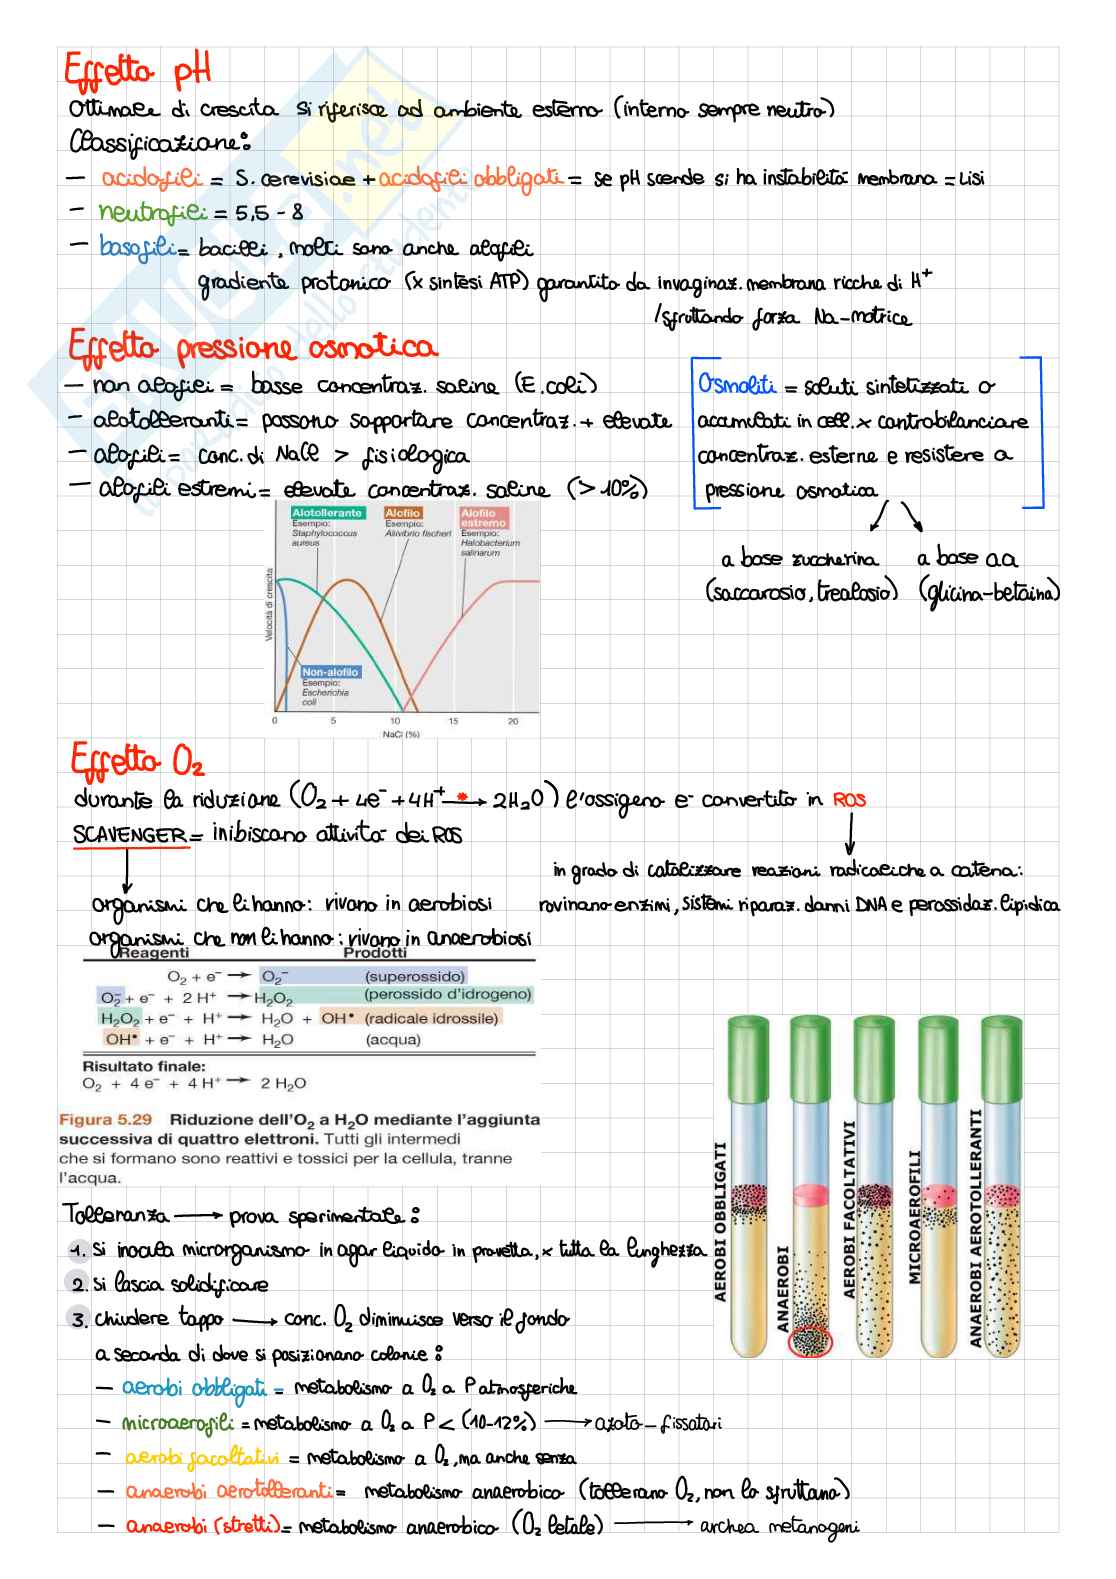 Effetto pH
Ottimale di crescita si riferisce ad ambiente esterno (interno sempre neutro)
Classificazione:
- acidofili = S. cerevisiae + acidofili obbligati = se pH scende si ha instabilità membrana = lisi
- neutrofili = 5,5 - 8
- basofili = bacilli, molti sono anche alofili
gradiente protonico (x sintesi ATP) garantito da invaginaz. membrana ricche di H+
/sfruttando forza Na-motrice
Effetto pressione osmotica
- non alofili = basse concentraz. saline (E. coli)
- alotolleranti = possono sopportare concentraz. + elevate
- alofili = conc. di NaCl > fisiologica
- alofili estremi = elevate concentraz. saline (>10%)
Osmoliti = soluti sintetizzati o
accumulati in cell. x controbilanciare
concentraz. esterne e resistere a
pressione osmotica
a base zuccherina
(saccarosio, trealosio)
a base aa
(glicina-betaina)
Alotollerante
Esempio:
Staphylococcus
aureus
Alofilo
Esempio:
Aliivibrio fischeri
Alofilo
estremo
Esempio:
Halobacterium
salinarum
Velocità di crescita
Non-alofilo
Esempio:
Escherichia
coli
0 5 10 15 20
NaCl (%)
Effetto O2
durante la riduzione (O2 + 4e- + 4H+ → 2H2O) l'ossigeno è convertito in ROS
SCAVENGER = inibiscono attività dei ROS
in grado di catalizzare reazioni radicaliche a catena:
rovinano enzimi, sistemi riparaz. danni DNA e perossidaz. lipidica
organismi che li hanno: vivono in aerobiosi
organismi che non li hanno: vivono in anaerobiosi
Reagenti Prodotti
O2 + e− → O2− (superossido)
O2− + e− + 2 H+ → H2O2 (perossido d'idrogeno)
H2O2 + e− + H+ → H2O + OH• (radicale idrossile)
OH• + e− + H+ → H2O (acqua)
Risultato finale:
O2 + 4 e− + 4 H+ → 2 H2O
Figura 5.29 Riduzione dell'O2 a H2O mediante l'aggiunta
successiva di quattro elettroni. Tutti gli intermedi
che si formano sono reattivi e tossici per la cellula, tranne
l'acqua.
AEROBI OBBLIGATI
ANAEROBI
AEROBI FACOLTATIVI
MICROAEROFILI
ANAEROBI AEROTOLLERANTI
Tolleranza → prova sperimentale:
1. Si inocula microrganismo in agar liquido in provetta, x tutta la lunghezza
2. si lascia solidificare
3. chiudere tappo → conc. O2 diminuisce verso il fondo
a seconda di dove si posizionano colonie:
- aerobi obbligati = metabolismo a O2 a P atmosferiche
- microaerofili = metabolismo a O2 a P < (10-12%) → azoto-fissatori
- aerobi facoltativi = metabolismo a O2, ma anche senza
- anaerobi aerotolleranti = metabolismo anaerobico (tollerano O2, non lo sfruttano)
- anaerobi (stretti) = metabolismo anaerobico (O2 letale) → archea metanogeni